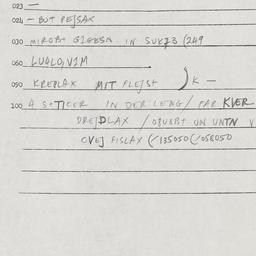 023 —
024 — BUT PEJSAX
030 MIROB+ G2GESN IN SUKZ3 (249
060 LUALO,V1M
090 KREPLAX MIT FLEJST ) K —
100 A S+TICER IN DER LENG/ FAR KVER
DREJDLAX / OBUABT UN UNTN V
CVEJ FISLAX (/135050(/058050